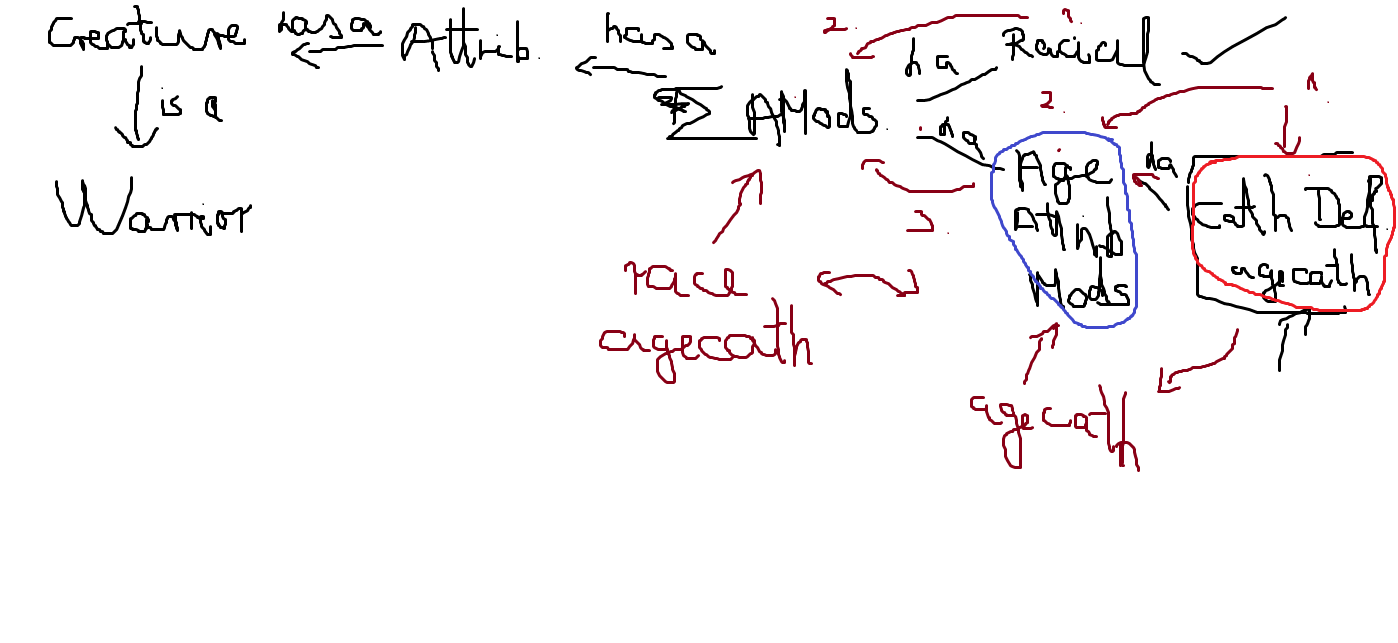 Creature has a Attrib. has a
is a
Warrior
2. 1.
ha Racial
Σ AMods.
ha
2. 1.
Age
Attrib
Mods
ha
Cath Def
agecath
3.
race
agecath
agecath